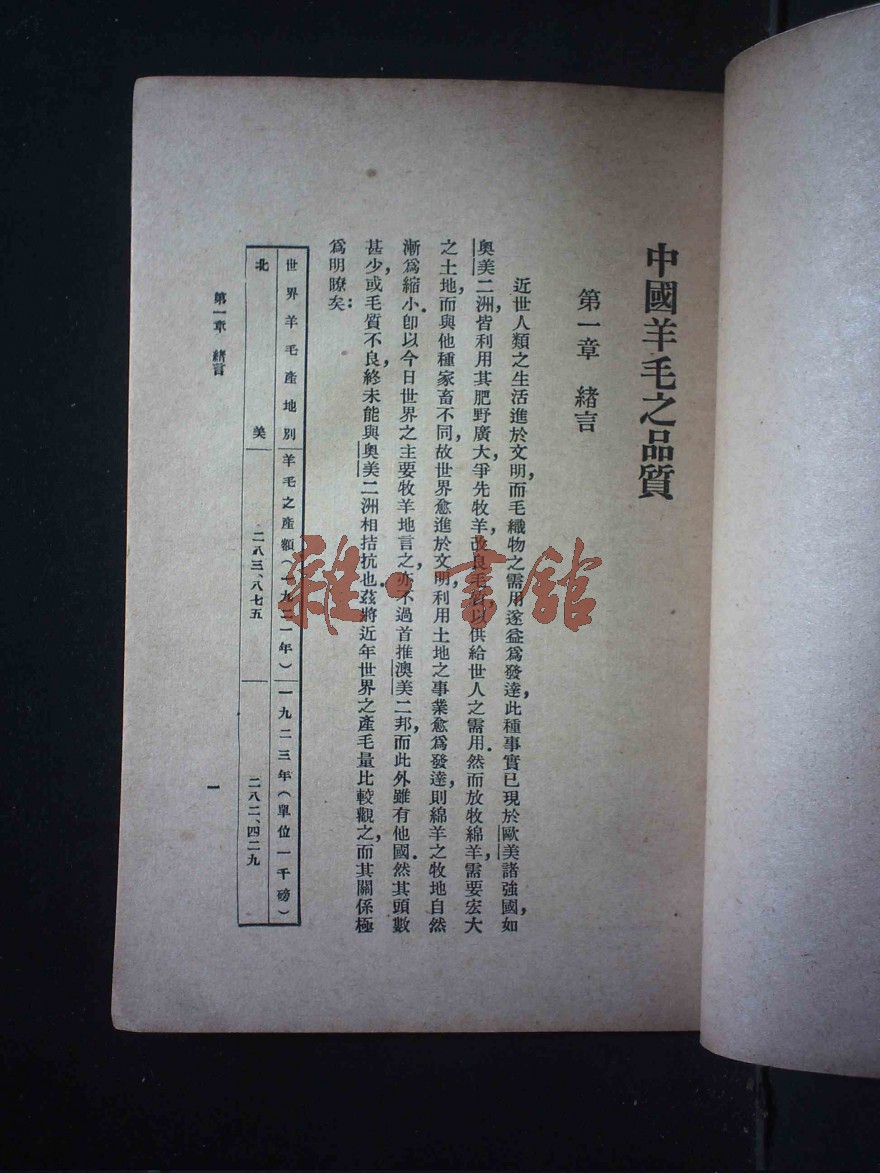 中國羊毛之品質
第一章 緒言
近世人類之生活進於文明,而毛織物之需用遂益爲發達,此種事實已現於歐美諸強國,如
奧美二洲,皆利用其肥野廣大爭先牧羊,改良毛質,以供給世人之需用.然而放牧綿羊,需要宏大
之土地,而與他種家畜不同,故世界愈進於文明,利用土地之事業愈爲發達,則綿羊之牧地自然
漸爲縮小.卽以今日世界之主要牧羊地言之,亦不過首推澳美二邦,而此外雖有他國.然其頭數
甚少,或毛質不良,終未能與奧美二洲相拮抗也.茲將近年世界之產毛量比較觀之,而其關係極
爲明瞭矣:
世界羊毛產地別 羊毛之產額(一九二一年) 一九二三年(單位一千磅)
北美 二八三、八七五 二八二、四二九
第一章 緒言
一
雜·書館